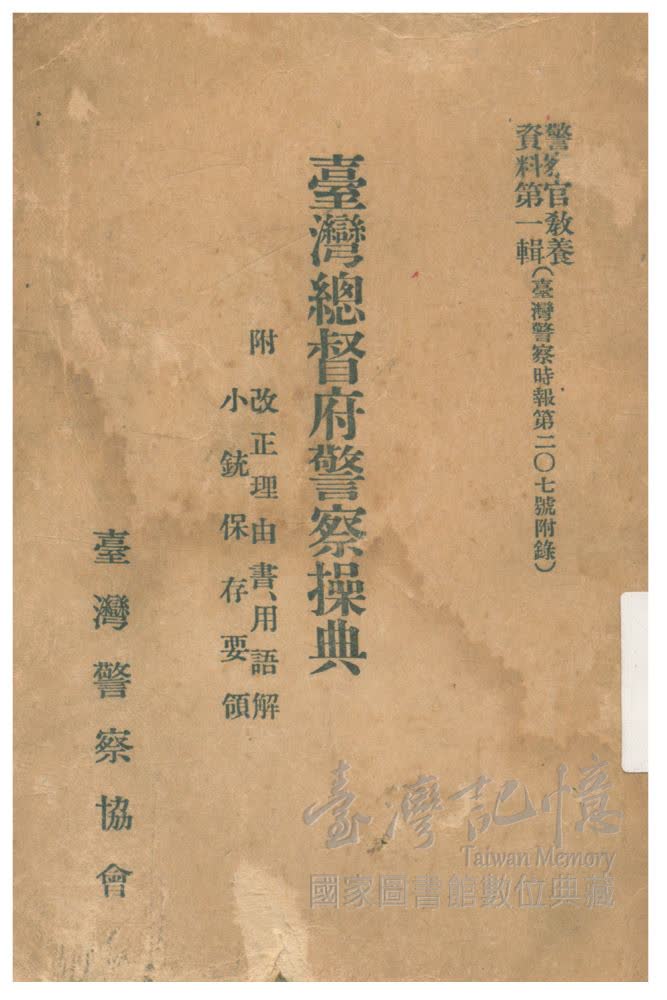 警察官敎養
資料第一輯(臺灣警察時報第二〇七號附錄)
臺灣總督府警察操典
附 改正理由書、用語解
小銃保存要領
臺灣警察協會
臺灣記憶
Taiwan Memory
國家圖書館數位典藏